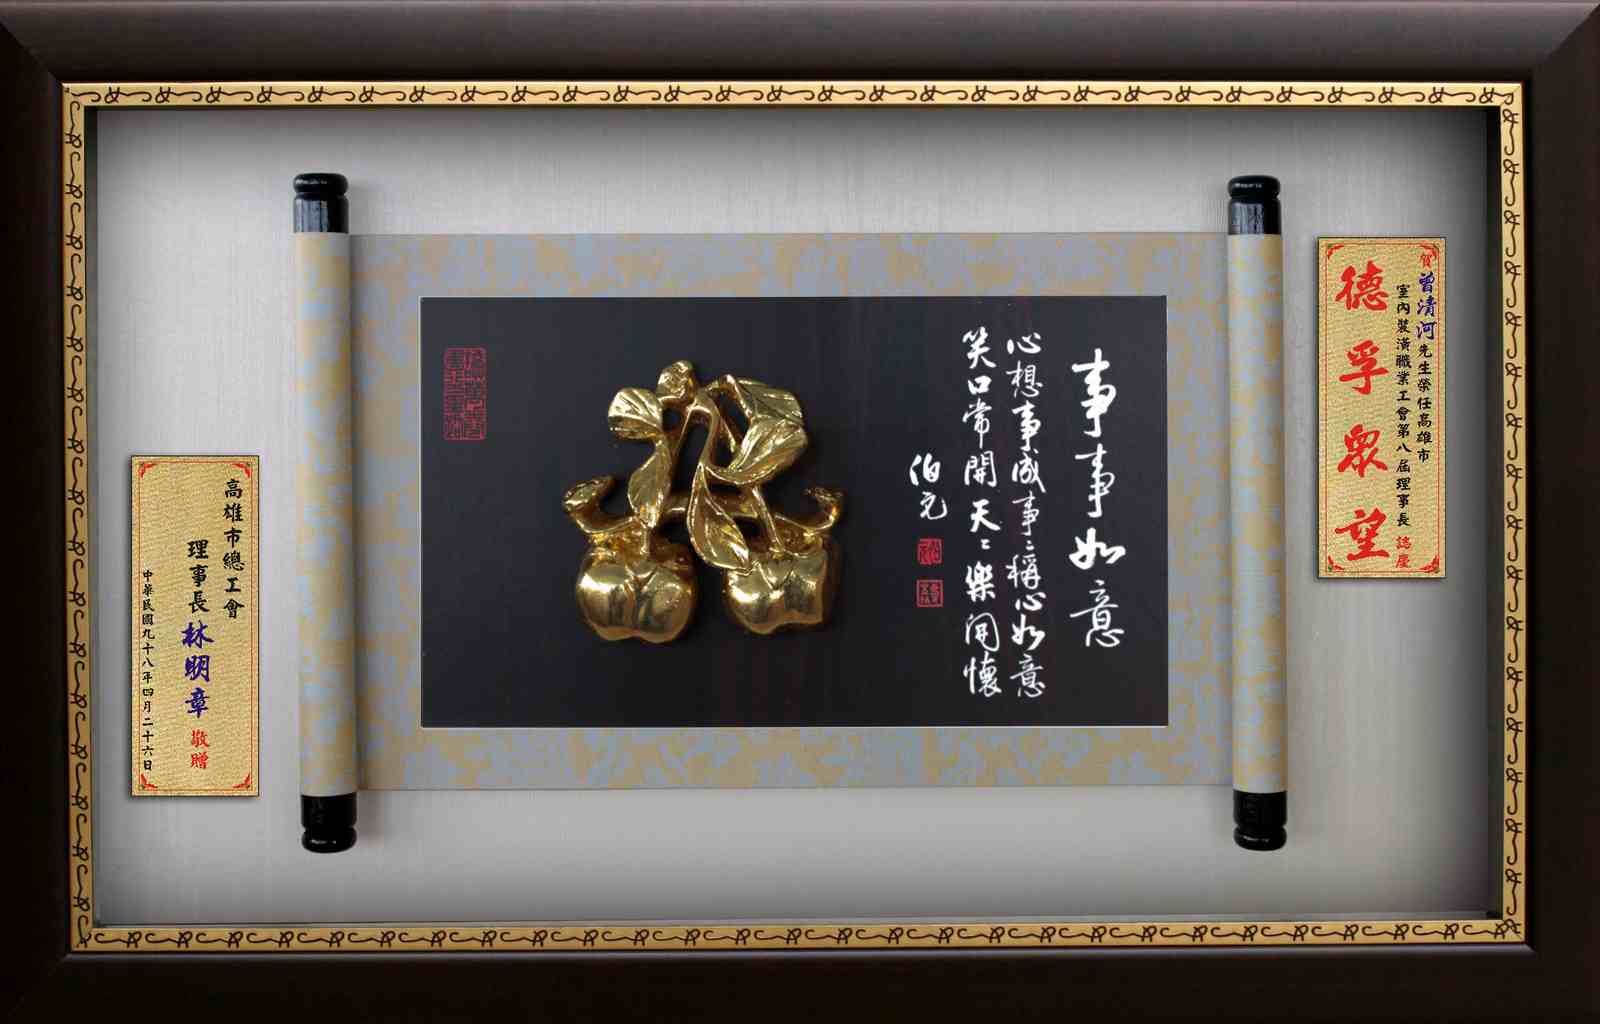 賀
曾清河先生榮任高雄市
室內裝潢職業工會第八屆理事長 誌慶
德孚眾望
事事如意
心想事成事事稱心如意
笑口常開天天樂開懷
伯元
高雄市總工會
理事長林明章 敬贈
中華民國九十八年四月二十六日